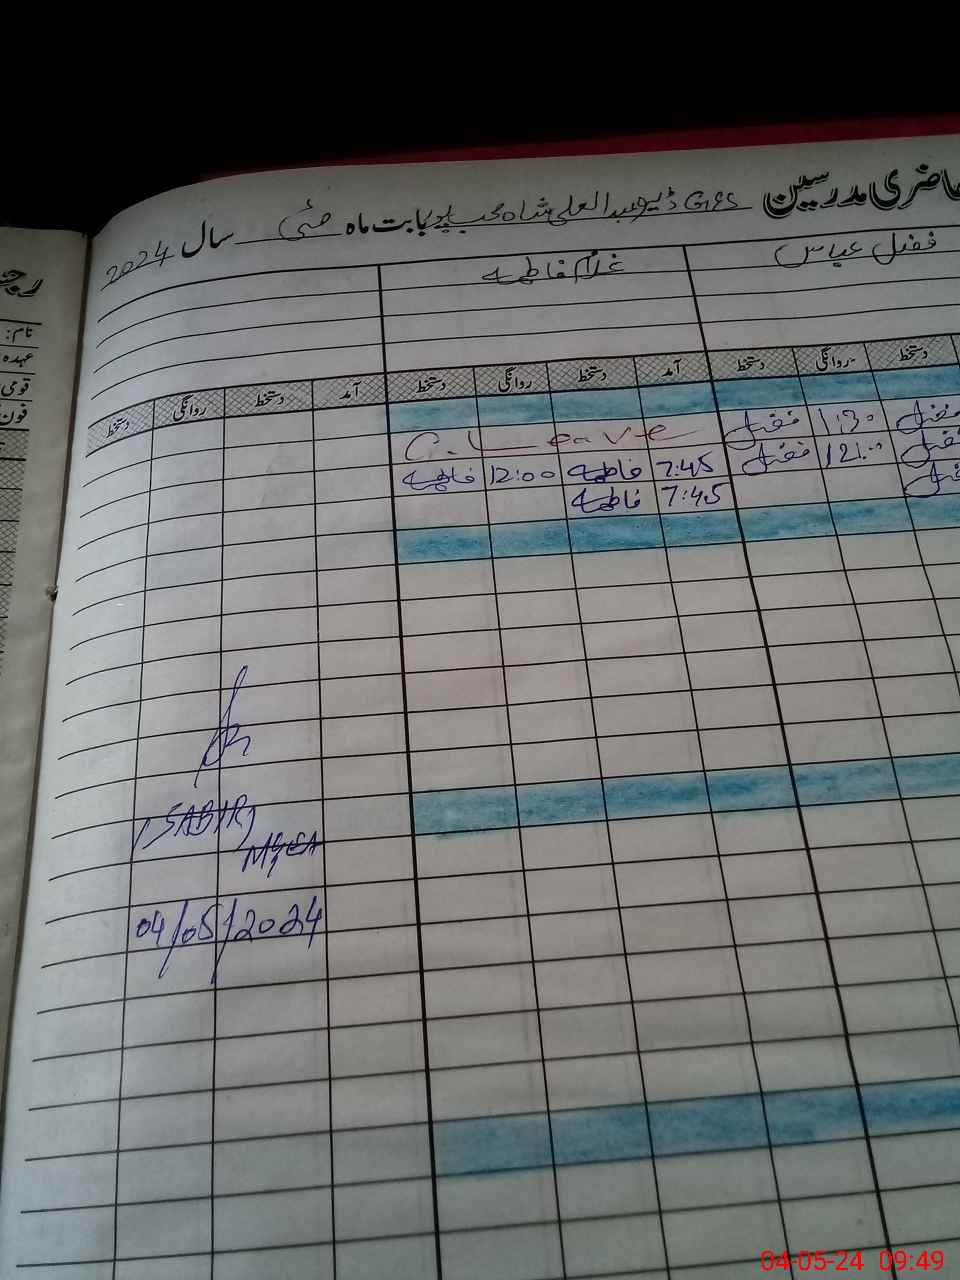 حاضری مدرسین GPS ڈیرہ عبدالعلی شاہ محب پور بابت ماہ مئی سال 2024
فضل عباس غلام فاطمہ
دستخط روانگی دستخط آمد دستخط روانگی دستخط آمد دستخط روانگی دستخط
فضل 1:30 فضل C. Leave
فضل 12:00 فضل 7:45 فاطمہ 12:00 فاطمہ
فضل 7:45 فاطمہ
(SABIR)
04/05/2024
نام:
عہدہ
قومی
فون
04-05-24 09:49